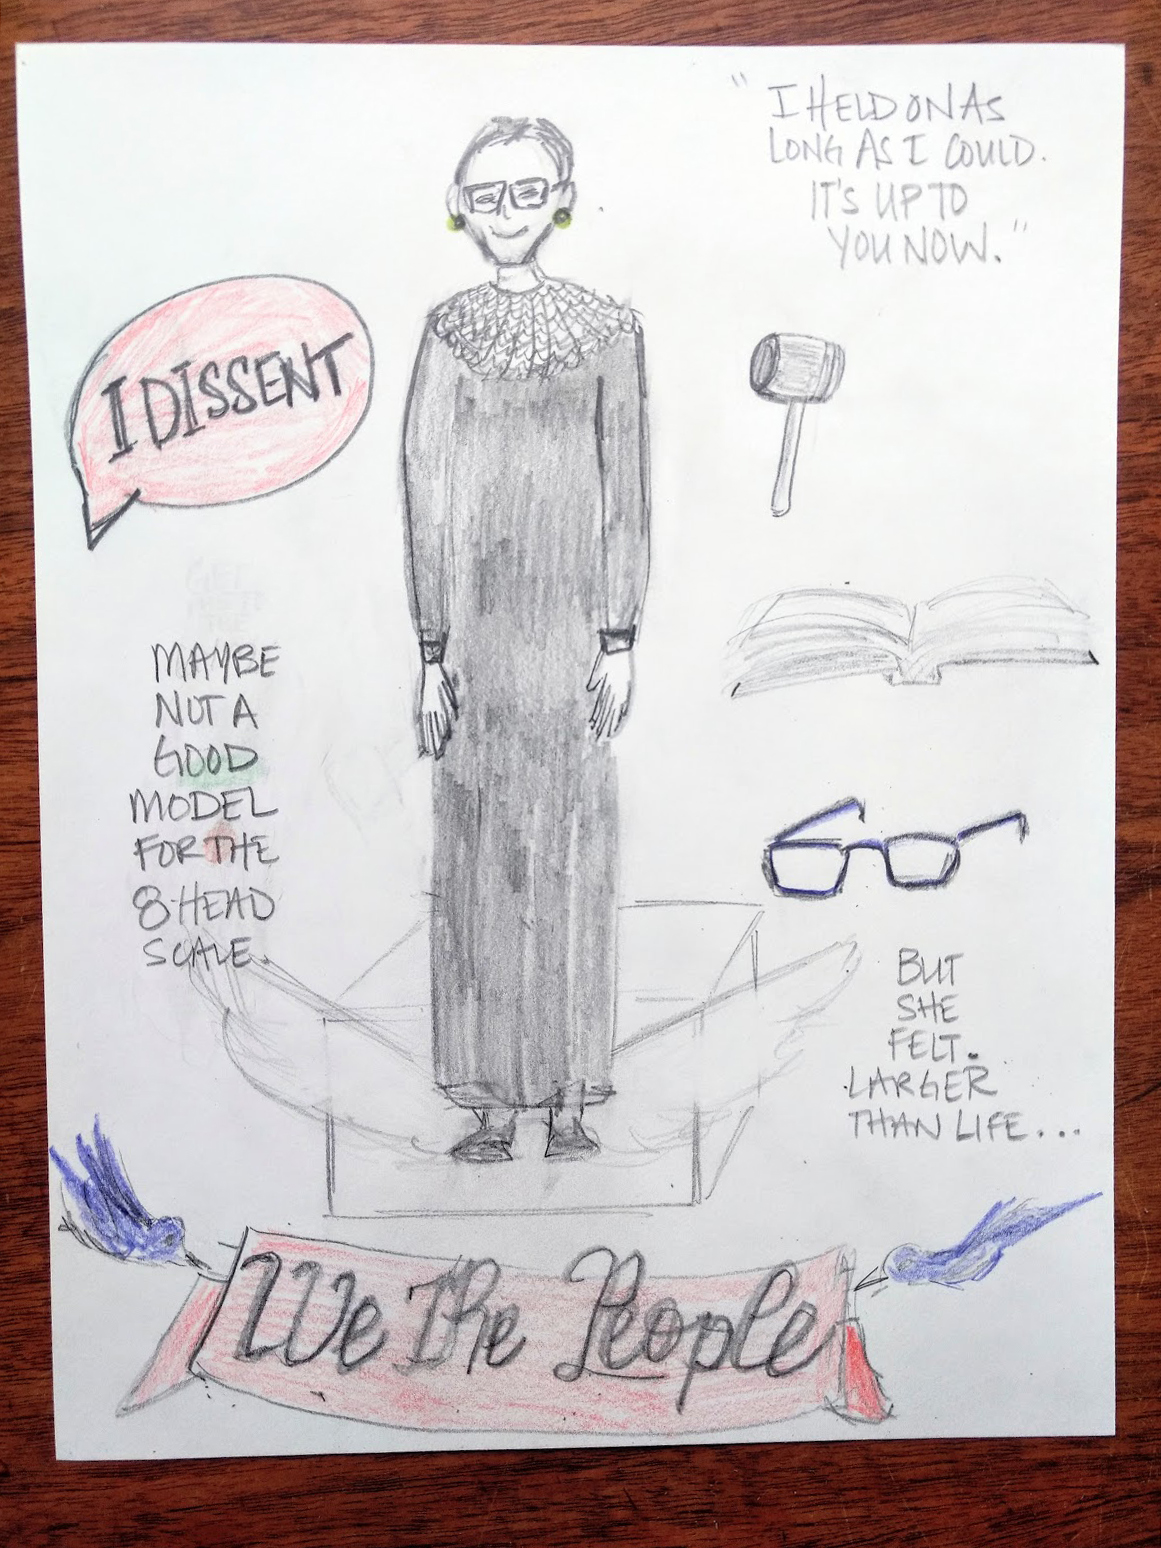 " I HELD ON AS
LONG AS I COULD.
IT'S UP TO
YOU NOW. "
I DISSENT
MAYBE
NOT A
GOOD
MODEL
FOR THE
8-HEAD
SCALE.
BUT
SHE
FELT.
LARGER
THAN LIFE...
We The People